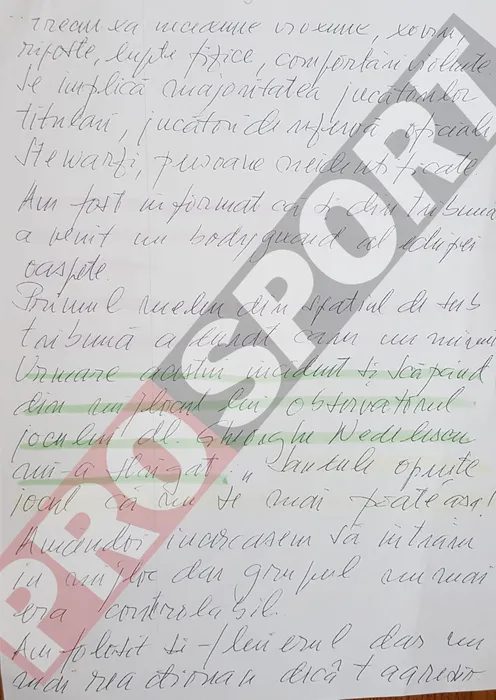 incidente
riposte, lupte fizice, comportări violente
Se implică majoritatea jucătorilor
titulari, jucători de rezervă, oficiali
stewarzi, persoane neidentificate
Am fost informat că și din tribună
a venit un bodyguard al echipei
oaspete.
Primul meden din spațiul de sub
tribună a durat cam un minut
Urmare acestui incident și scăpând
din îmbulzeală
observatorul
jocului dl. Gheorghe Nedelescu
mi-a strigat: "Sandule oprește
jocul că nu se mai poate așa!
Amândoi încercasem să intrăm
în mijloc dar grupul nu mai
era controlabil.
Am folosit și fluierul dar nu
mai reacționau decât agresiv
PROSPORT